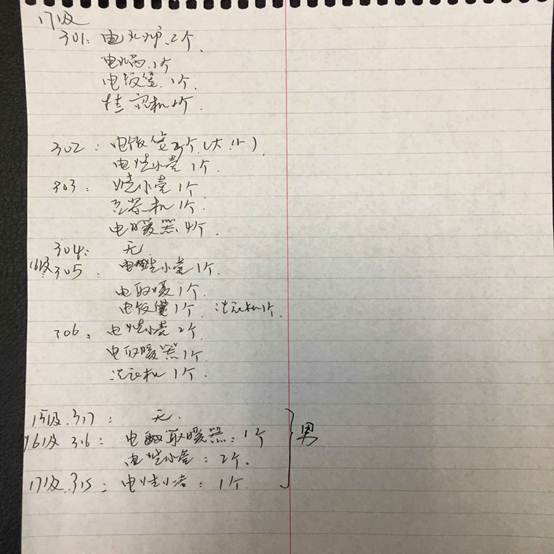 17级
301: 电火炉 2个
电锅 1个
电饭煲 1个
挂烫机 1个
302: 电饭煲 2个 (大.小)
电烧水壶 1个
303: 烧水壶 1个
机 1个
电暖器 4个
304: 无
16级 305: 电烧水壶 1个
电取暖 1个
电饭煲 1个 洗衣机 1个
306: 电烧水壶 2个
电取暖器 1个
洗衣机 1个
15级.317: 无.
16级 316: 电取暖器: 1个
电烧水壶: 2个.
17级.315: 电烧水壶: 1个
男